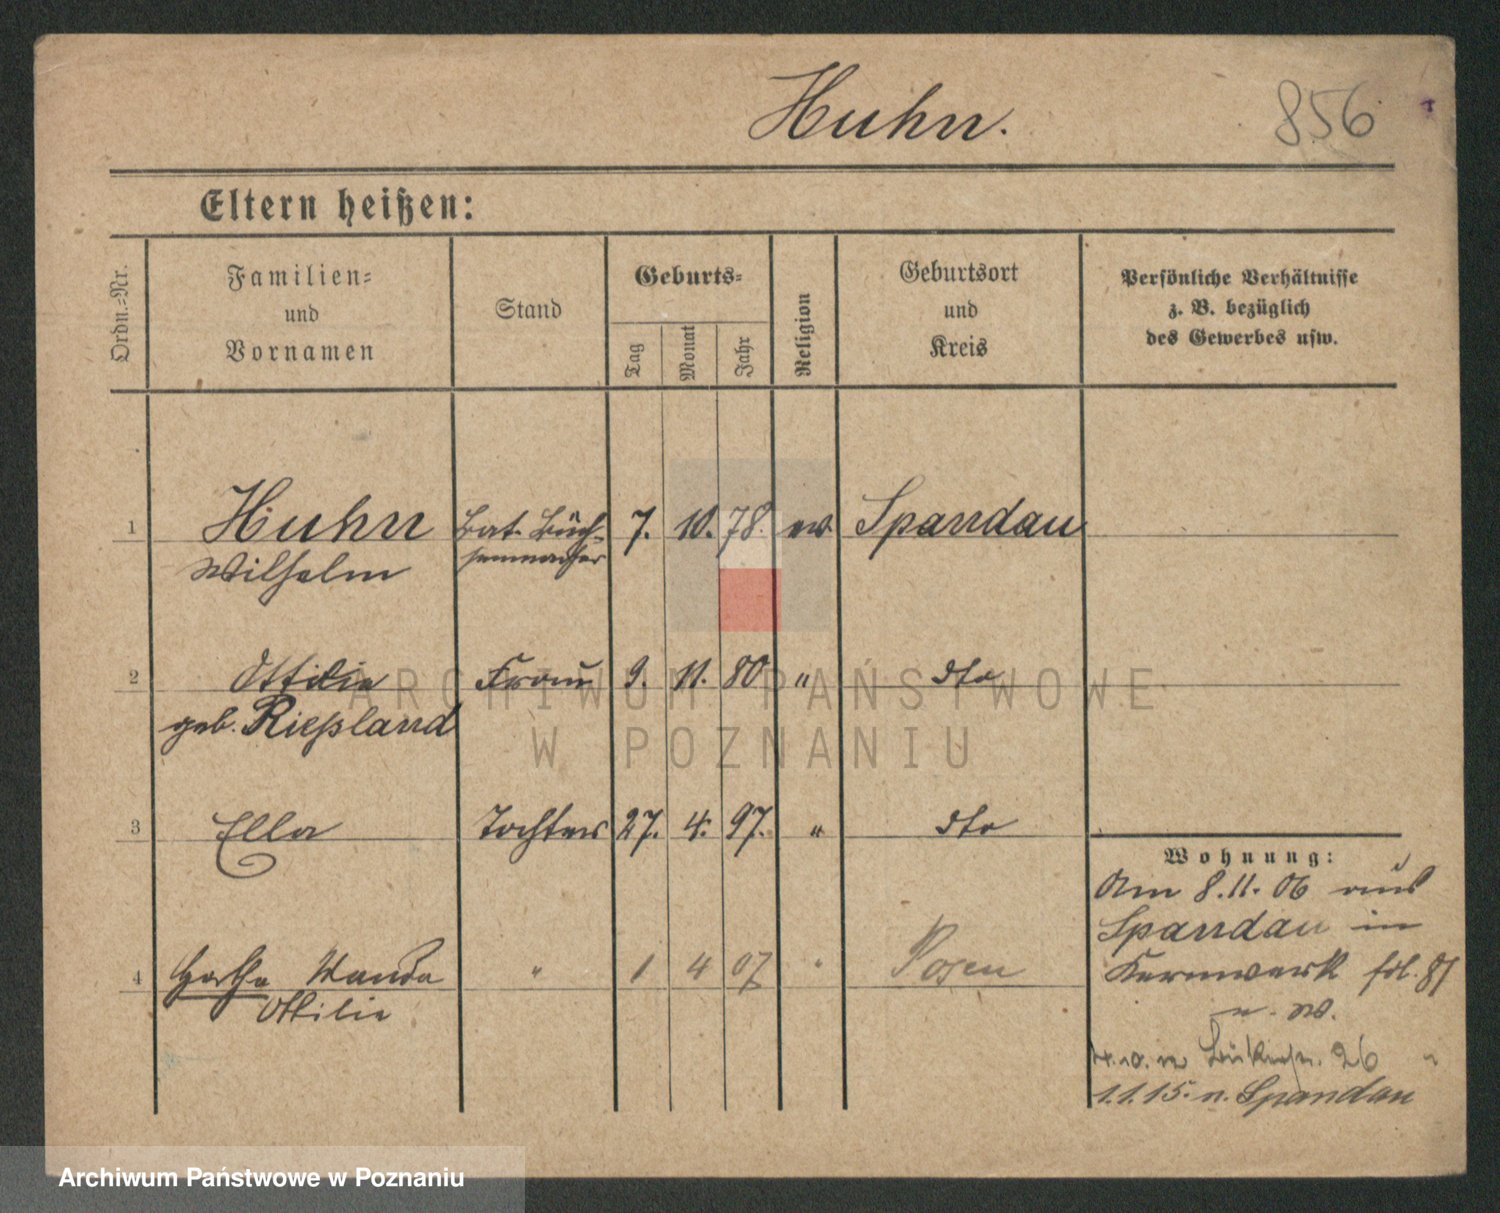 Huhn.
856
Eltern heißen:
Ordn.=Nr.
Familien=
und
Vornamen
Stand
Geburts=
Tag
Monat
Jahr
Religion
Geburtsort
und
Kreis
Persönliche Verhältnisse
z. B. bezüglich
des Gewerbes usw.
1 Huhn Bat. Büch- 7. 10. 78. ev Spandau
Wilhelm senmacher
2 Ottilie Frau 9. 11. 80 " dto
geb. Rießland
3 Ella Tochter 27. 4. 97. " dto
4 Hertha Wanda " 1 4 07 " Posen
Ottilie
Wohnung:
Am 8.11.06 aus
Spandau in
Kernwerk
26
1.1.15. n. Spandau
ARCHIWUM PAŃSTWOWE
W POZNANIU
Archiwum Państwowe w Poznaniu